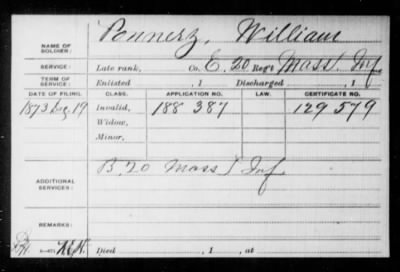 NAME OF SOLDIER: Pennerz, William
SERVICE: Late rank, Co. E, 20 Reg't Mass. Inf.
TERM OF SERVICE: Enlisted , 1 Discharged , 1
DATE OF FILING. CLASS. APPLICATION NO. LAW. CERTIFICATE NO.
1873 Aug. 19 Invalid, 188 387 129 579
Widow,
Minor,
ADDITIONAL SERVICES: B. 20 Mass Inf
REMARKS:
Died , 1 , at